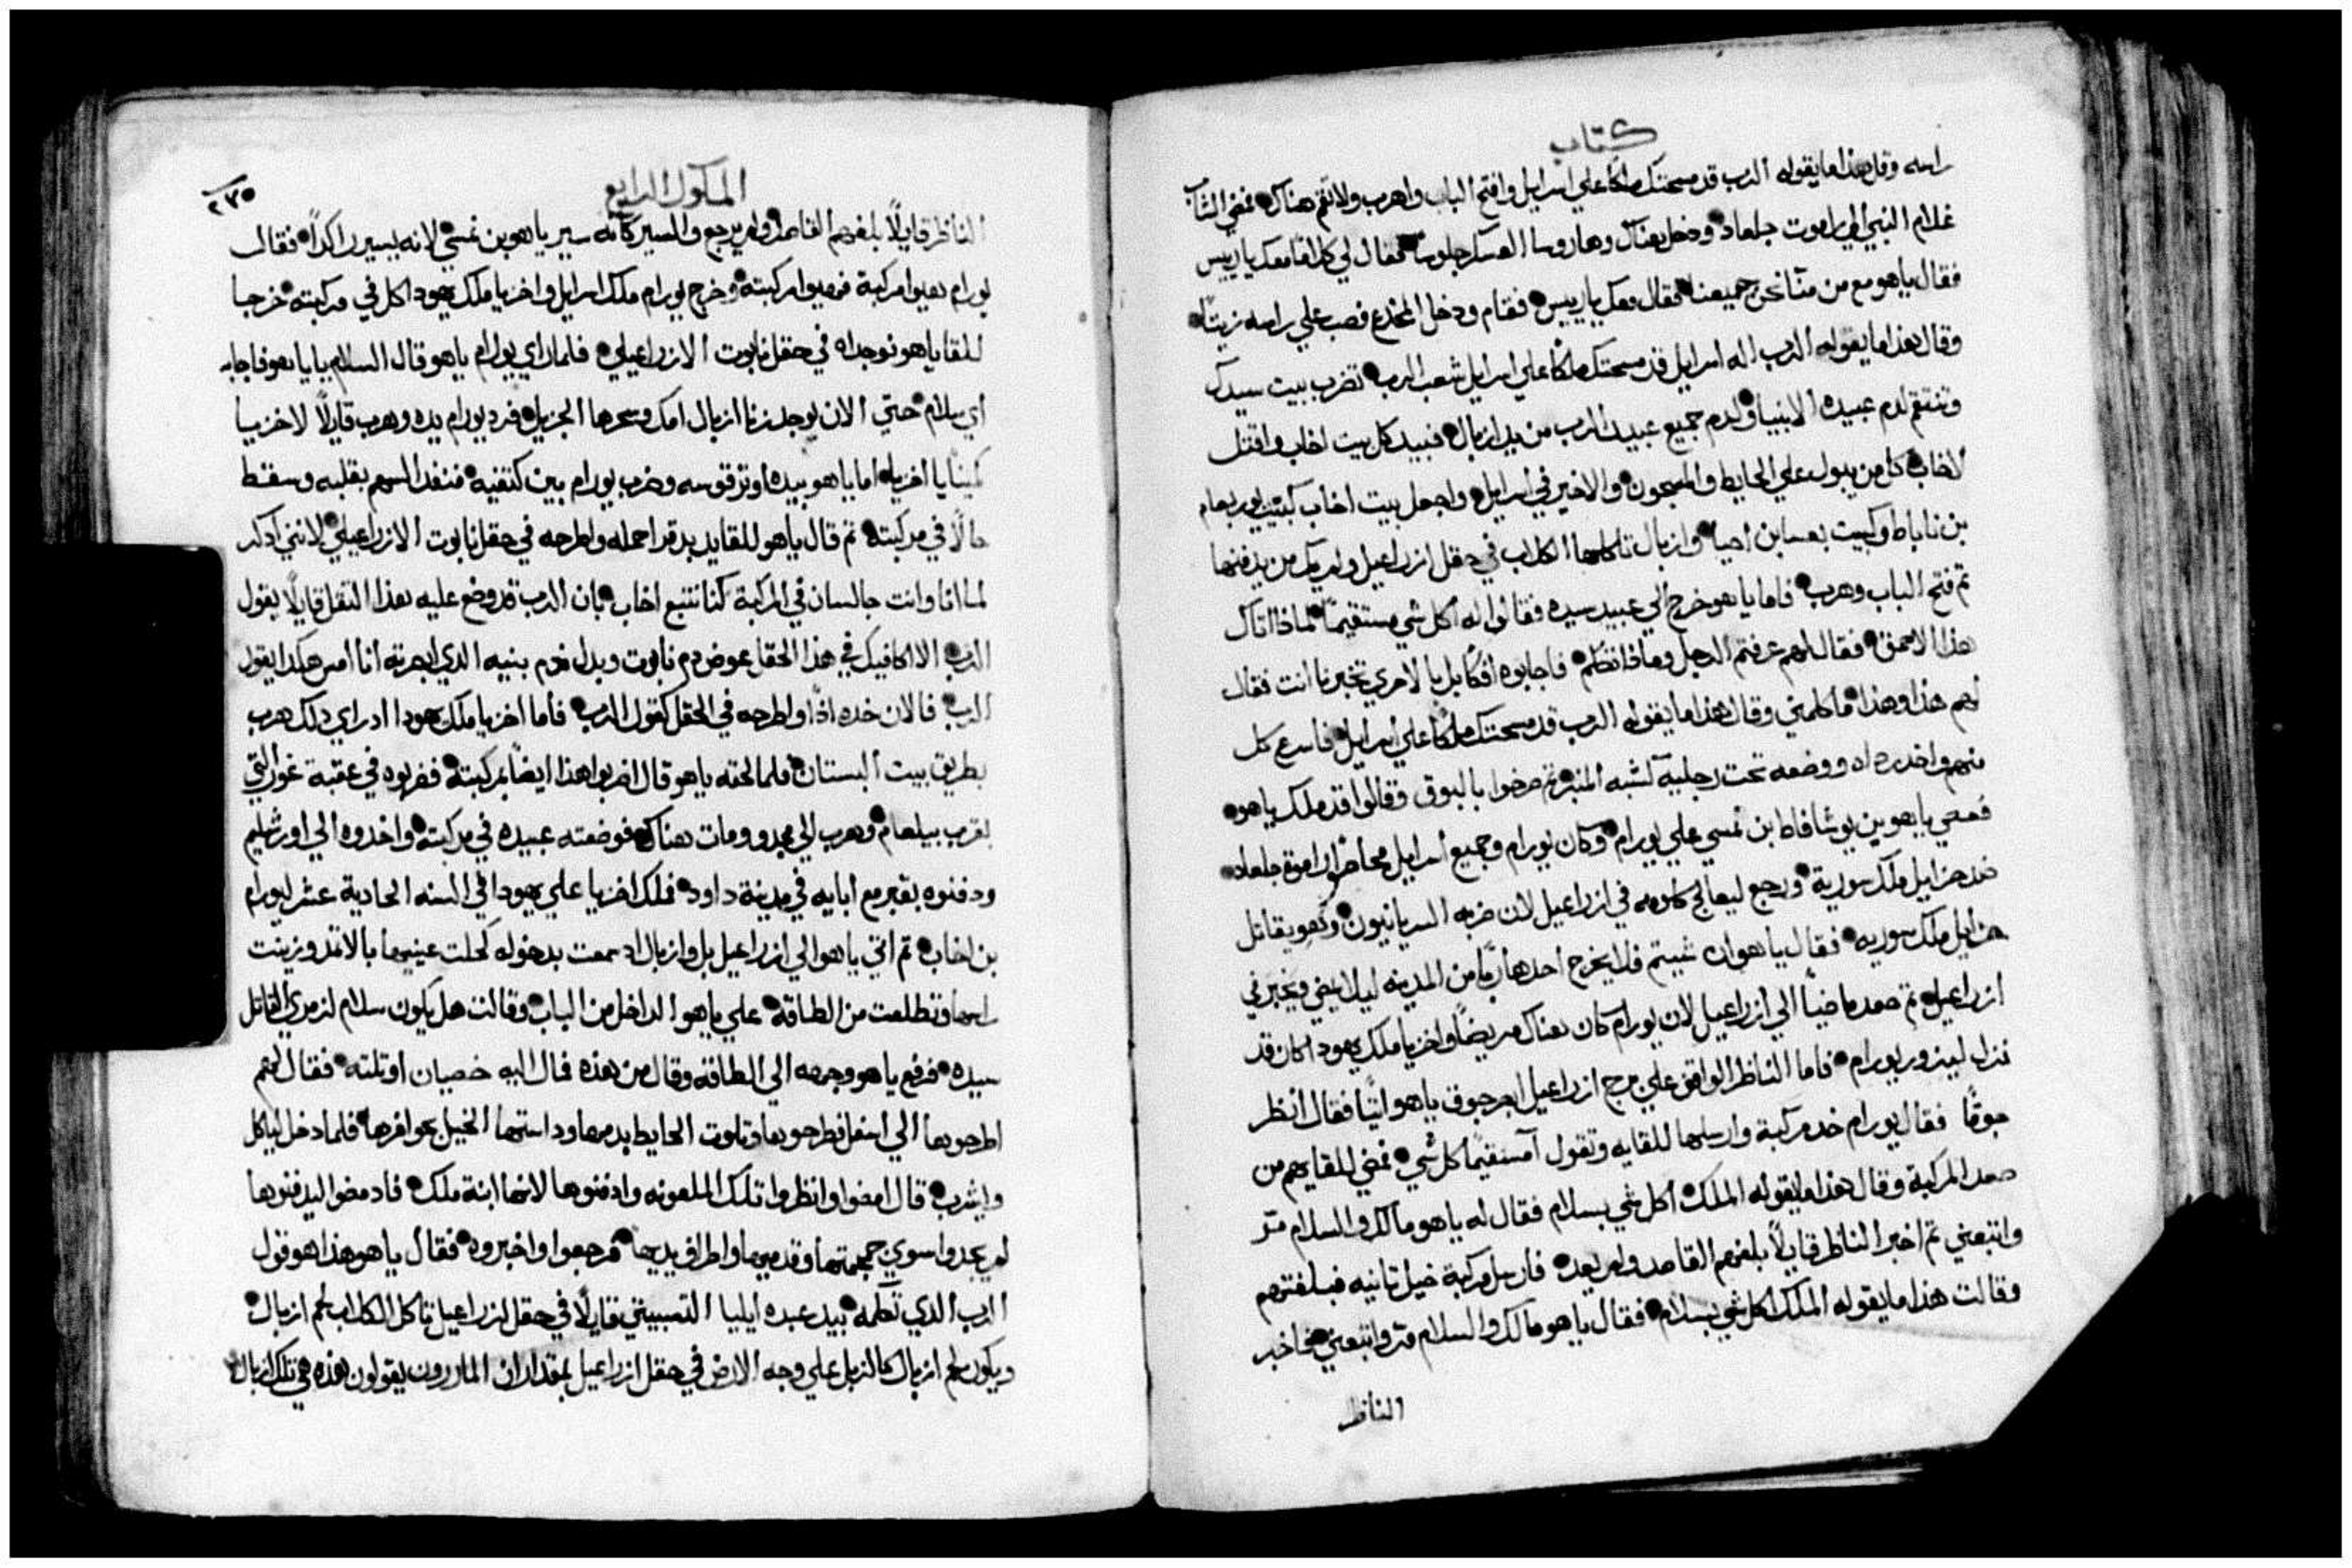 كتاب
راسه وقل هذا ما يقوله الرب قد مسحتك ملكا علي اسرايل وافتح الباب واهرب ولا تقم هناك فمضي الشاب
غلام النبي الي راموت جلعاد ودخل هناك وها روسا العسكر جلوسا فقال لي كلاما معك يا رييس
فقال ياهو مع من منا نحن جميعنا فقال معك يا رييس فقام ودخل المخدع فصب علي راسه زيتا
وقال هذا ما يقوله الرب اله اسرايل قد مسحتك ملكا علي اسرايل شعب الرب تضرب بيت سيدك
وتنتقم لدم عبيده الانبيا ولدم جميع عبيد الرب من يد ازبال فنبيد كل بيت اخاب واقتل
لاخاب كل من يبول علي الحايط والمسجون والاخير في اسرايل واجعل بيت اخاب كبيت يوربعام
بن ناباط وكبيت بعسا بن احيا وازبال تاكلها الكلاب في حقل ازراعيل ولم يك من يدفنها
ثم فتح الباب وهرب فاما ياهو خرج الي عبيد سيده فقالوا له اكل شي مستقيما لماذا اتاك
هذا الاحمق فقال لهم عرفتم الرجل وماذا تكلم فاجابوه افكا بل بالاحري تخبرنا انت فقال
لهم هذا وهذا ما كلمني وقال هذا ما يقوله الرب قد مسحتك ملكا علي اسرايل فاسرع كل
منهم واخد رداه ووضعه تحت رجليه كشبه المنبر ثم صرخوا بالبوق وقالوا قد ملك ياهو
فعصي ياهو بن يوشافاط بن نمسي علي يورام وكان يورام وجميع اسرايل محاضرا راموة جلعاد
ضد حزايل ملك سورية ورجع ليعالج كلومه في ازراعيل لان ضربه السريانيون وهو يقاتل
حزايل ملك سوريه فقال ياهو ان شيتم فلا يخرج احد هاربا من المدينه ليلا يمضي ويخبر في
ازراعيل ثم صعد ماضيا الي ازراعيل لان يورام كان هناك مريضا واخزيا ملك يهودا كان قد
نزل ليزور يورام فاما الناظر الواقف علي برج ازراعيل ابصر جوق ياهو اتيا فقال انظر
جوقا فقال يورام خد مركبة وارسلها للقايه وتقول امستقيما كل شي فمضي للقايهم من
صعد المركبة وقال هذا ما يقوله الملك اكل شي بسلام فقال له ياهو ما لك والسلام مر
واتبعني ثم اخبر الناظر قايلا بلغهم القاصد ولم يعد فارسل مركبة خيل تانيه فبلغتهم
وقالت هذا ما يقوله الملك اكل شي بسلام فقال ياهو ما لك والسلام مر واتبعني فاخبر
الناظر
المكوك الرابع
٢٧٥
الناظر قايلا بلغهم القاصد ولم يرجع والسير كانه سير ياهو بن نمسي لانه يسير راكدا فقال
يورام هيوا مركبة فهيوا مركبته وخرج يورام ملك اسرايل واخزيا ملك يهودا كل في مركبته خرجا
للقا ياهو فوجداه في حقل نابوت الازراعيلي فلما راي يورام ياهو قال السلام يا ياهو فاجابه
اي سلام حتي الان يوجد زنا ازبال امك وسحرها الجزيل فرد يورام يده وهرب قايلا لاخزيا
كمينا يا اخزيا اما ياهو بيده اوتر قوسه وضرب يورام بين كتفيه فنفد السهم بقلبه وسقط
حالا في مركبته ثم قال ياهو للقايد بدقر احمله واطرحه في حقل نابوت الازراعيلي لانني ادكر
لما انا وانت جالسان في المركبة كنا نتبع اخاب بان الرب قد وضع عليه هذا الثقل قايلا يقول
الرب الا اكافيك في هذا الحقل عوض دم نابوت وبدل دم بنيه الدي ابصرته انا امس هكدا يقول
الرب فالان خده ادا واطرحه في الحقل كقول الرب فاما اخزيا ملك يهودا اد راي دلك هرب
بطريق بيت البستان فلما لحقه ياهو قال اضربوا هذا ايضا بمركبته فضربوه في عقبة غور التي
بقرب يبلعام وهرب الي مجدو ومات هناك فوضعته عبيده في مركبته واخدوه الي اورشليم
ودفنوه بقبر مع ابايه في مدينة داود فملك اخزيا علي يهودا في السنه الحادية عشر ليورام
بن اخاب ثم اتي ياهو الي ازراعيل بل وازبال اد سمعت بدخوله كحلت عينيها بالاتمد وزينت
راسها وتطلعت من الطاقة علي ياهو الداخل من الباب وقالت هل يكون سلام لزمري القاتل
سيده فرفع ياهو وجهه الي الطاقه وقال من هذه فمال اليه خصيان او تلته فقال لهم
اطرحوها الي اسفل فطرحوها وتلوت الحايط بدمها وداستها الخيل بحوافرها فلما دخل لياكل
وليشرب قال امضوا وانظروا تلك الملعونه وادفنوها لانها ابنة ملك فاد مضوا ليدفنوها
لم يجدوا سوي جمجمتها وقدميها واطراف يديها فرجعوا واخبروه فقال ياهو هذا هو قول
الرب الدي تكلمه بيد عبده ايليا التسبيتي قايلا في حقل ازراعيل تاكل الكلاب لحم ازبال
ويكون لحم ازبال كالزبل علي وجه الارض في حقل ازراعيل بمقدار ان المارون يقولون هذه هي تلك ازبال